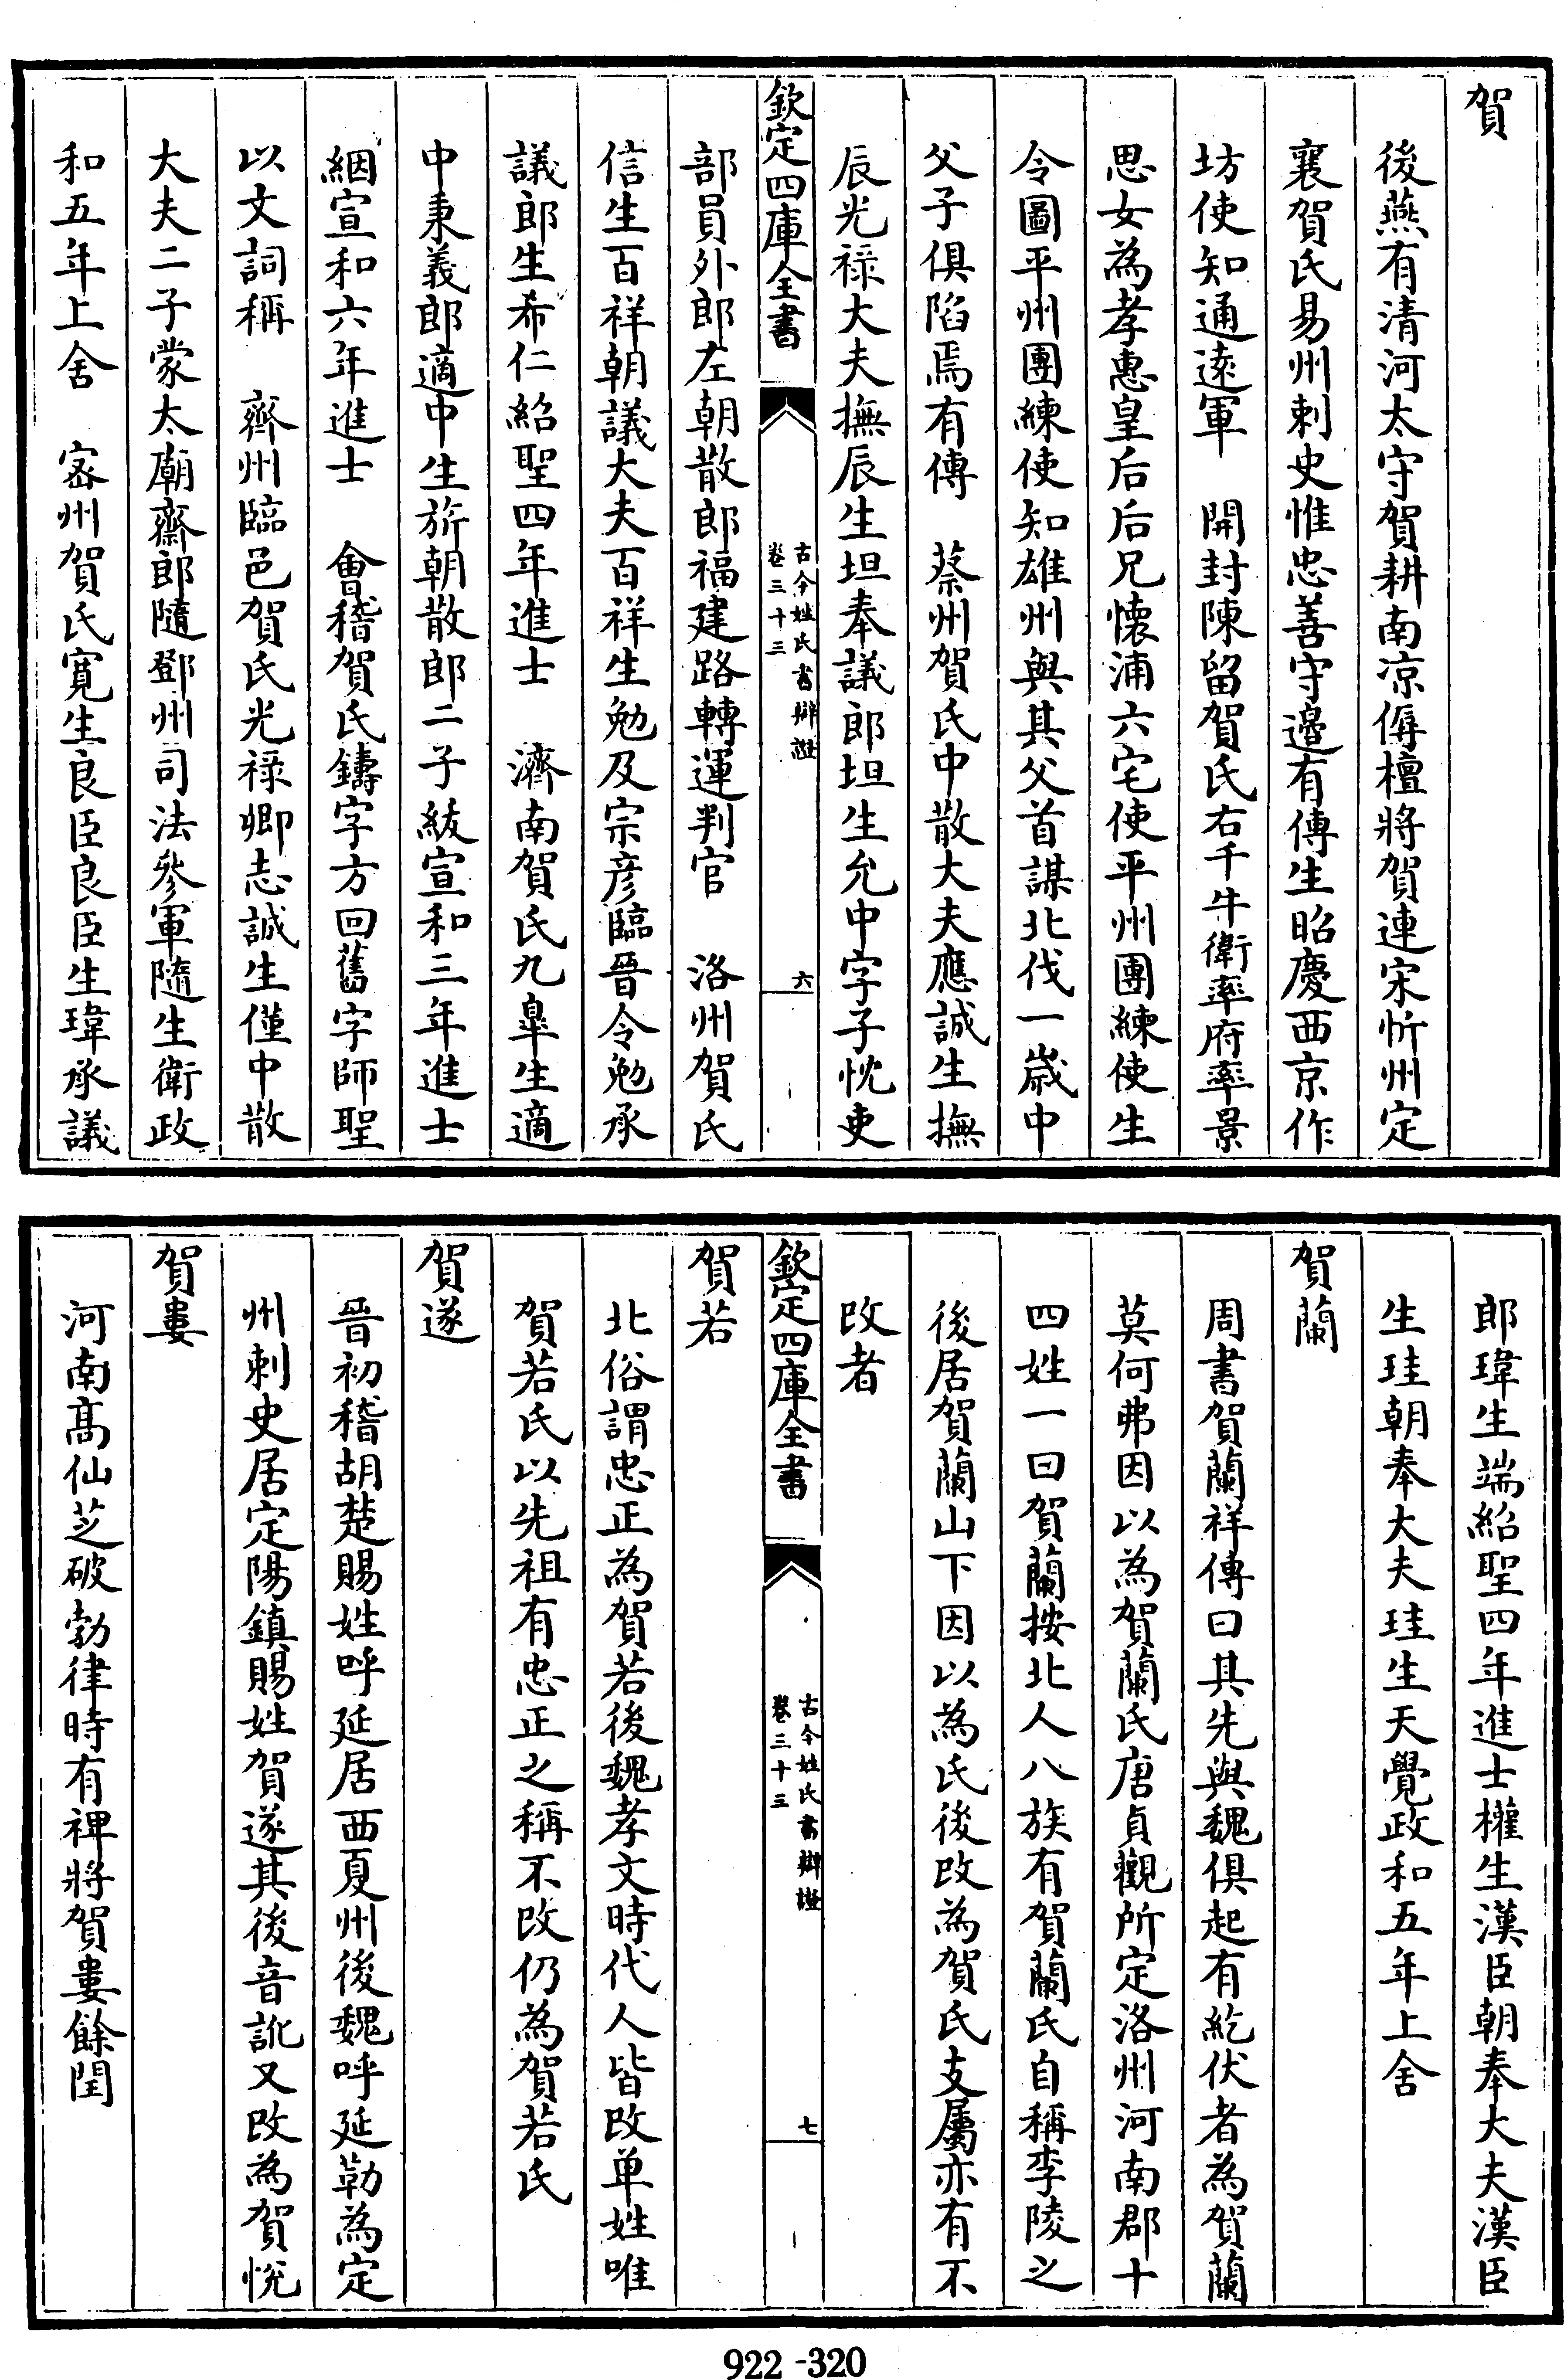 賀
後燕有清河太守賀耕南凉傉檀將賀連宋忻州定
襄賀氏易州刺史惟忠善守邉有傳生昭慶西京作
坊使知通逺軍　開封陳留賀氏右千牛衛率府率景
思女為孝惠皇后后兄懐浦六宅使平州團練使生
令圖平州團練使知雄州與其父首謀北伐一嵗中
父子俱陷焉有傳　蔡州賀氏中散大夫應誠生撫
辰光禄大夫撫辰生坦奉議郎坦生允中字子忱吏
欽定四庫全書
古今姓氏書辯證
卷三十三
六
部員外郎左朝散郎福建路轉運判官　洺州賀氏
信生百祥朝議大夫百祥生勉及宗彦臨晉令勉承
議郎生希仁紹聖四年進士　濟南賀氏九臯生適
中秉義郎適中生旂朝散郎二子紱宣和三年進士
絪宣和六年進士　會稽賀氏鑄字方回舊字師聖
以文詞稱　齊州臨邑賀氏光禄卿志誠生僅中散
大夫二子蒙太廟齋郎隨鄧州司法參軍隨生衛政
和五年上舍　宻州賀氏寛生良臣良臣生瑋承議
郎瑋生端紹聖四年進士權生漢臣朝奉大夫漢臣
生珪朝奉大夫珪生天覺政和五年上舍
賀蘭
周書賀蘭祥傳曰其先與魏俱起有紇伏者為賀蘭
莫何弗因以為賀蘭氏唐貞觀所定洛州河南郡十
四姓一曰賀蘭按北人八族有賀蘭氏自稱李陵之
後居賀蘭山下因以為氏後改為賀氏支屬亦有不
改者
欽定四庫全書
古今姓氏書辯證
卷三十三
七
賀若
北俗謂忠正為賀若後魏孝文時代人皆改单姓唯
賀若氏以先祖有忠正之稱不改仍為賀若氏
賀遂
晉初稽胡楚賜姓呼延居西夏州後魏呼延勒為定
州刺史居定陽鎮賜姓賀遂其後音訛又改為賀悅
賀婁
河南髙仙芝破勃律時有裨將賀婁餘閏
922-320